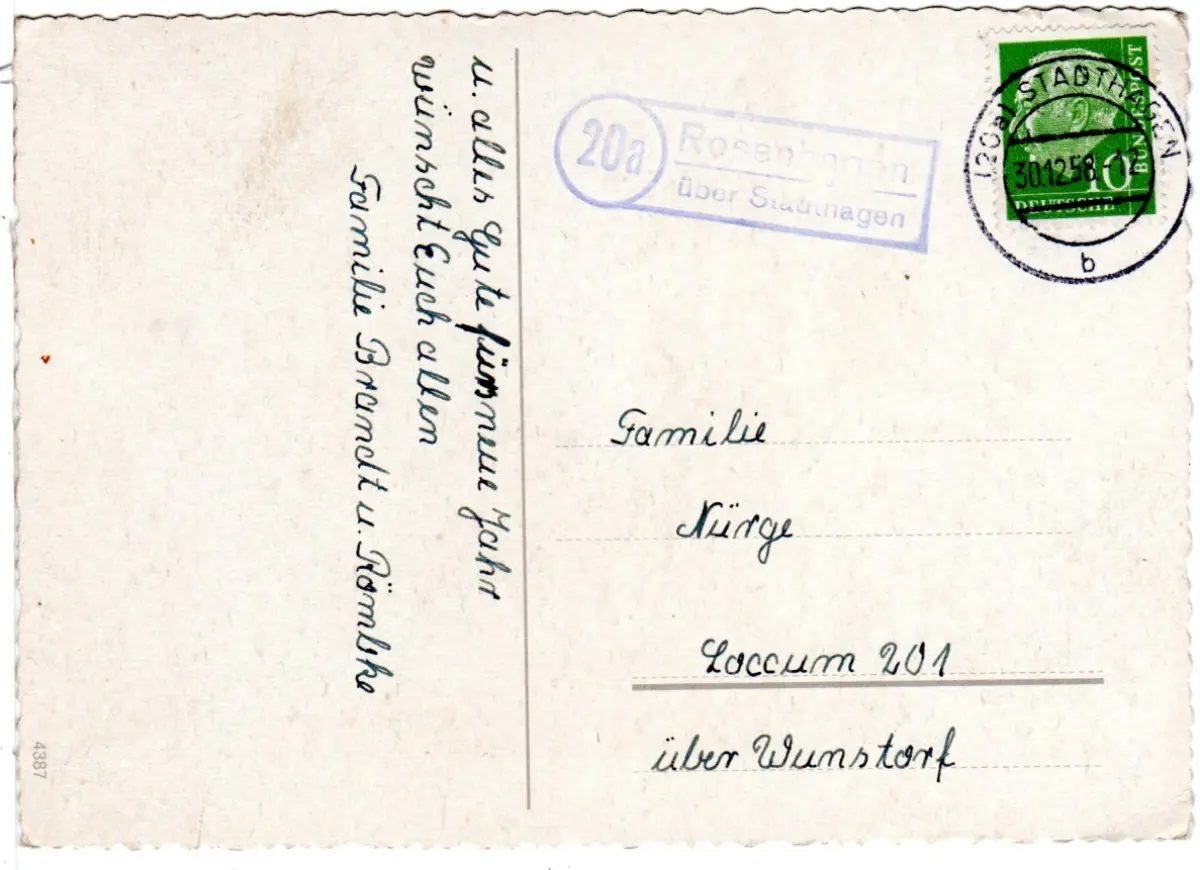 u. alles Gute fürs neue Jahr
wünscht Euch allen
Familie Brandt u. Römbke
4387
20a
Rosenhagen
über Stadthagen
(20a) STADTHAGEN
30.12.58.-12
b
DEUTSCHE
BUNDESPOST
10
Familie
Nürge
Loccum 201
über Wunstorf